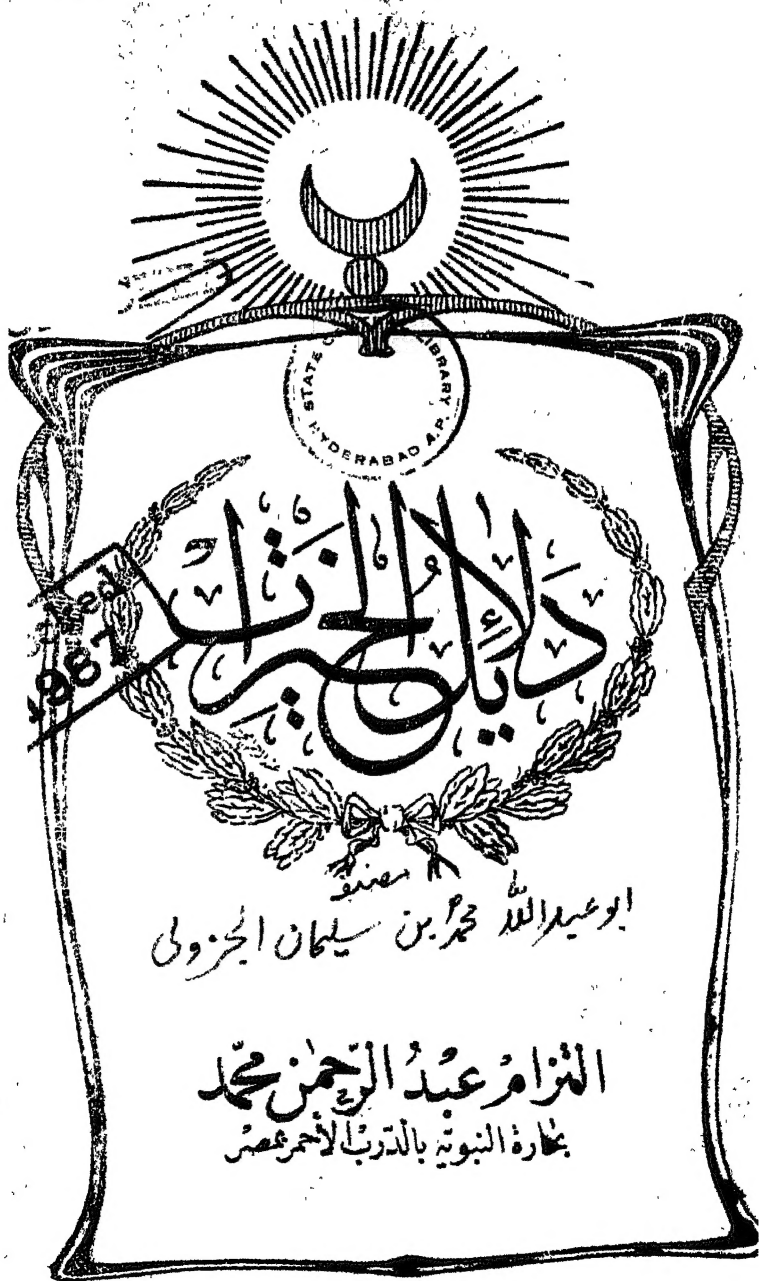 STATE LIBRARY
HYDERABAD A.P.
دَلَائِلُ الخَيْرَات
1987
مصنف
ابو عبد اللہ محمد بن سلیمان الجزولی
التزام عبد الرحمن محمد
بحارة النبوية بالدرب الأحمر بمصر